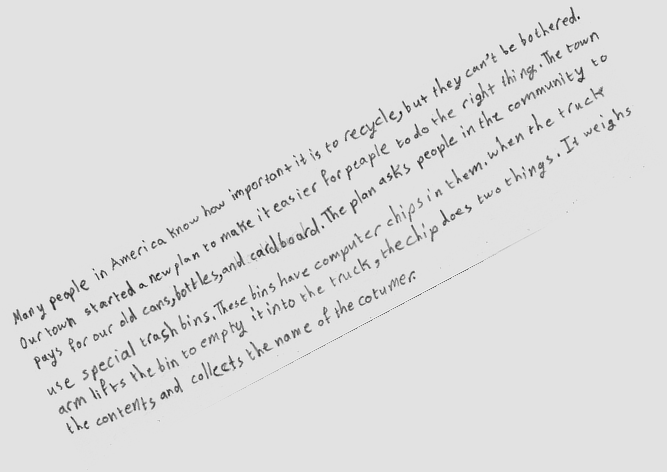 Many people in America know how important it is to recycle, but they can't be bothered.
Our town started a new plan to make it easier for peaple to do the right thing. The town
pays for our old cans, bottles, and cardboard. The plan asks people in the community to
use special trash bins. These bins have computer chips in them. when the truck
arm lifts the bin to empty it into the truck, the chip does two things. It weighs
the contents and collects the name of the cotumer.